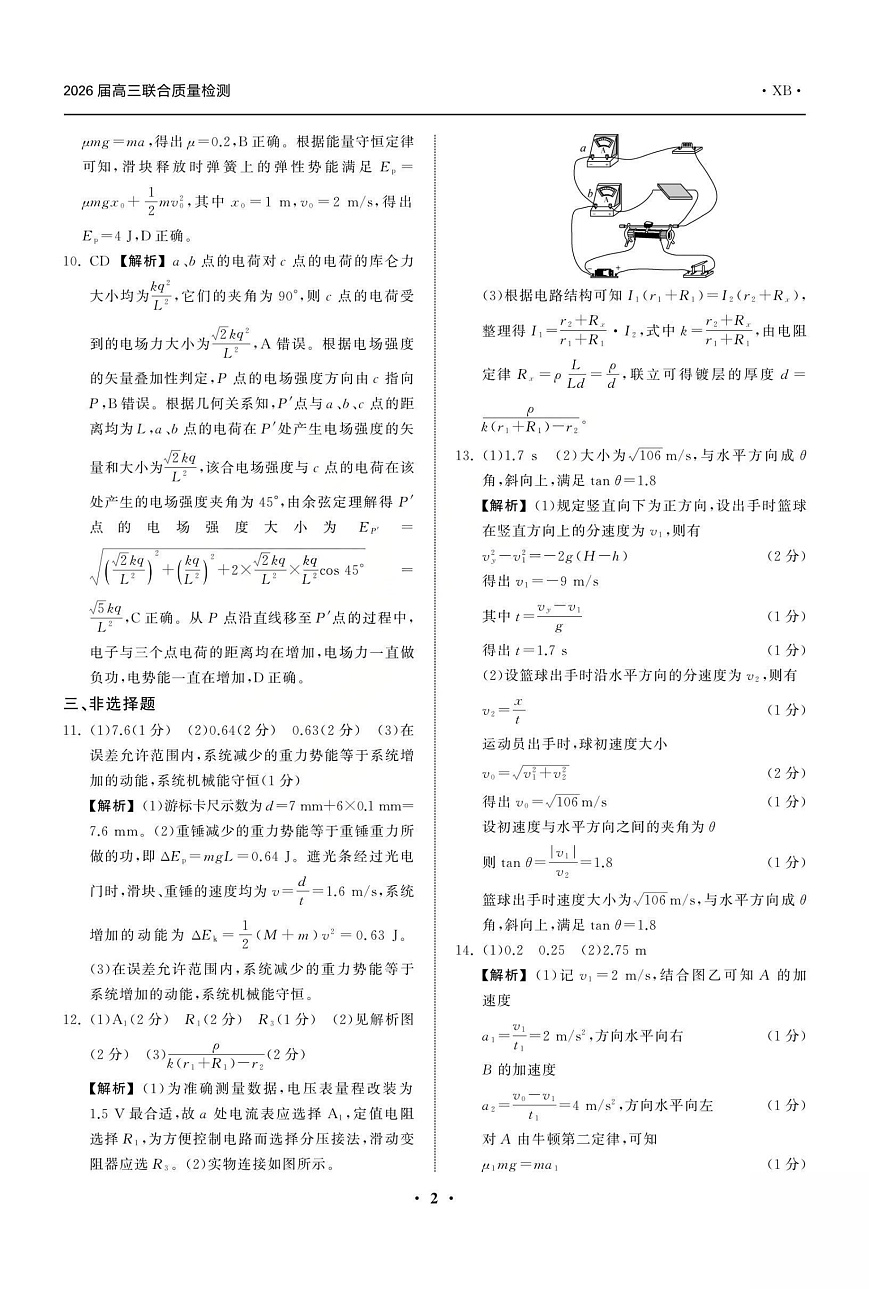 2026 届高三联合质量检测
· XB ·
μmg=ma,得出 μ=0.2,B 正确。根据能量守恒定律
可知,滑块释放时弹簧上的弹性势能满足 Eₚ=
μmgx₀+\frac{1}{2}mv₀²,其中 x₀=1 m,v₀=2 m/s,得出
Eₚ=4 J,D 正确。
10. CD 【解析】a、b 点的电荷对 c 点的电荷的库仑力
大小均为\frac{kq²}{L²},它们的夹角为 90°,则 c 点的电荷受
到的电场力大小为\frac{√2kq²}{L²},A 错误。根据电场强度
的矢量叠加性判定,P 点的电场强度方向由 c 指向
P,B 错误。根据几何关系知,P′点与 a、b、c 点的距
离均为 L,a、b 点的电荷在 P′处产生电场强度的矢
量和大小为\frac{√2kq}{L²},该合电场强度与 c 点的电荷在该
处产生的电场强度夹角为 45°,由余弦定理解得 P′
点的电场强度大小为 E_{P′} =
\sqrt{(\frac{√2kq}{L²})²+(\frac{kq}{L²})²+2×\frac{√2kq}{L²}×\frac{kq}{L²}cos 45°} =
\frac{√5kq}{L²},C 正确。从 P 点沿直线移至 P′点的过程中,
电子与三个点电荷的距离均在增加,电场力一直做
负功,电势能一直在增加,D 正确。
三、非选择题
11. (1)7.6(1 分) (2)0.64(2 分) 0.63(2 分) (3)在
误差允许范围内,系统减少的重力势能等于系统增
加的动能,系统机械能守恒(1 分)
【解析】(1)游标卡尺示数为 d=7 mm+6×0.1 mm=
7.6 mm。(2)重锤减少的重力势能等于重锤重力所
做的功,即 ΔEₚ=mgL=0.64 J。遮光条经过光电
门时,滑块、重锤的速度均为 v=\frac{d}{t}=1.6 m/s,系统
增加的动能为 ΔEₖ=\frac{1}{2}(M+m)v²=0.63 J。
(3)在误差允许范围内,系统减少的重力势能等于
系统增加的动能,系统机械能守恒。
12. (1)A₁(2 分) R₁(2 分) R₃(1 分) (2)见解析图
(2 分) (3)\frac{ρ}{k(r₁+R₁)-r₂}(2 分)
【解析】(1)为准确测量数据,电压表量程改装为
1.5 V 最合适,故 a 处电流表应选择 A₁,定值电阻
选择 R₁,为方便控制电路而选择分压接法,滑动变
阻器应选 R₃。(2)实物连接如图所示。
a
A
b
A
+
(3)根据电路结构可知 I₁(r₁+R₁)=I₂(r₂+Rₓ),
整理得 I₁=\frac{r₂+Rₓ}{r₁+R₁}·I₂,式中 k=\frac{r₂+Rₓ}{r₁+R₁},由电阻
定律 Rₓ=ρ\frac{L}{Ld}=\frac{ρ}{d},联立可得镀层的厚度 d=
\frac{ρ}{k(r₁+R₁)-r₂}。
13. (1)1.7 s (2)大小为√106 m/s,与水平方向成 θ
角,斜向上,满足 tan θ=1.8
【解析】(1)规定竖直向下为正方向,设出手时篮球
在竖直方向上的分速度为 v₁,则有
v_y²-v₁²=-2g(H-h) (2 分)
得出 v₁=-9 m/s
其中 t=\frac{v_y-v₁}{g} (1 分)
得出 t=1.7 s (1 分)
(2)设篮球出手时沿水平方向的分速度为 v₂,则有
v₂=\frac{x}{t} (1 分)
运动员出手时,球初速度大小
v₀=\sqrt{v₁²+v₂²} (2 分)
得出 v₀=√106 m/s (1 分)
设初速度与水平方向之间的夹角为 θ
则 tan θ=\frac{|v₁|}{v₂}=1.8 (1 分)
篮球出手时速度大小为√106 m/s,与水平方向成 θ
角,斜向上,满足 tan θ=1.8
14. (1)0.2 0.25 (2)2.75 m
【解析】(1)记 v₁=2 m/s,结合图乙可知 A 的加
速度
a₁=\frac{v₁}{t₁}=2 m/s²,方向水平向右 (1 分)
B 的加速度
a₂=\frac{v₀-v₁}{t₁}=4 m/s²,方向水平向左 (1 分)
对 A 由牛顿第二定律,可知
μ₁mg=ma₁ (1 分)
· 2 ·